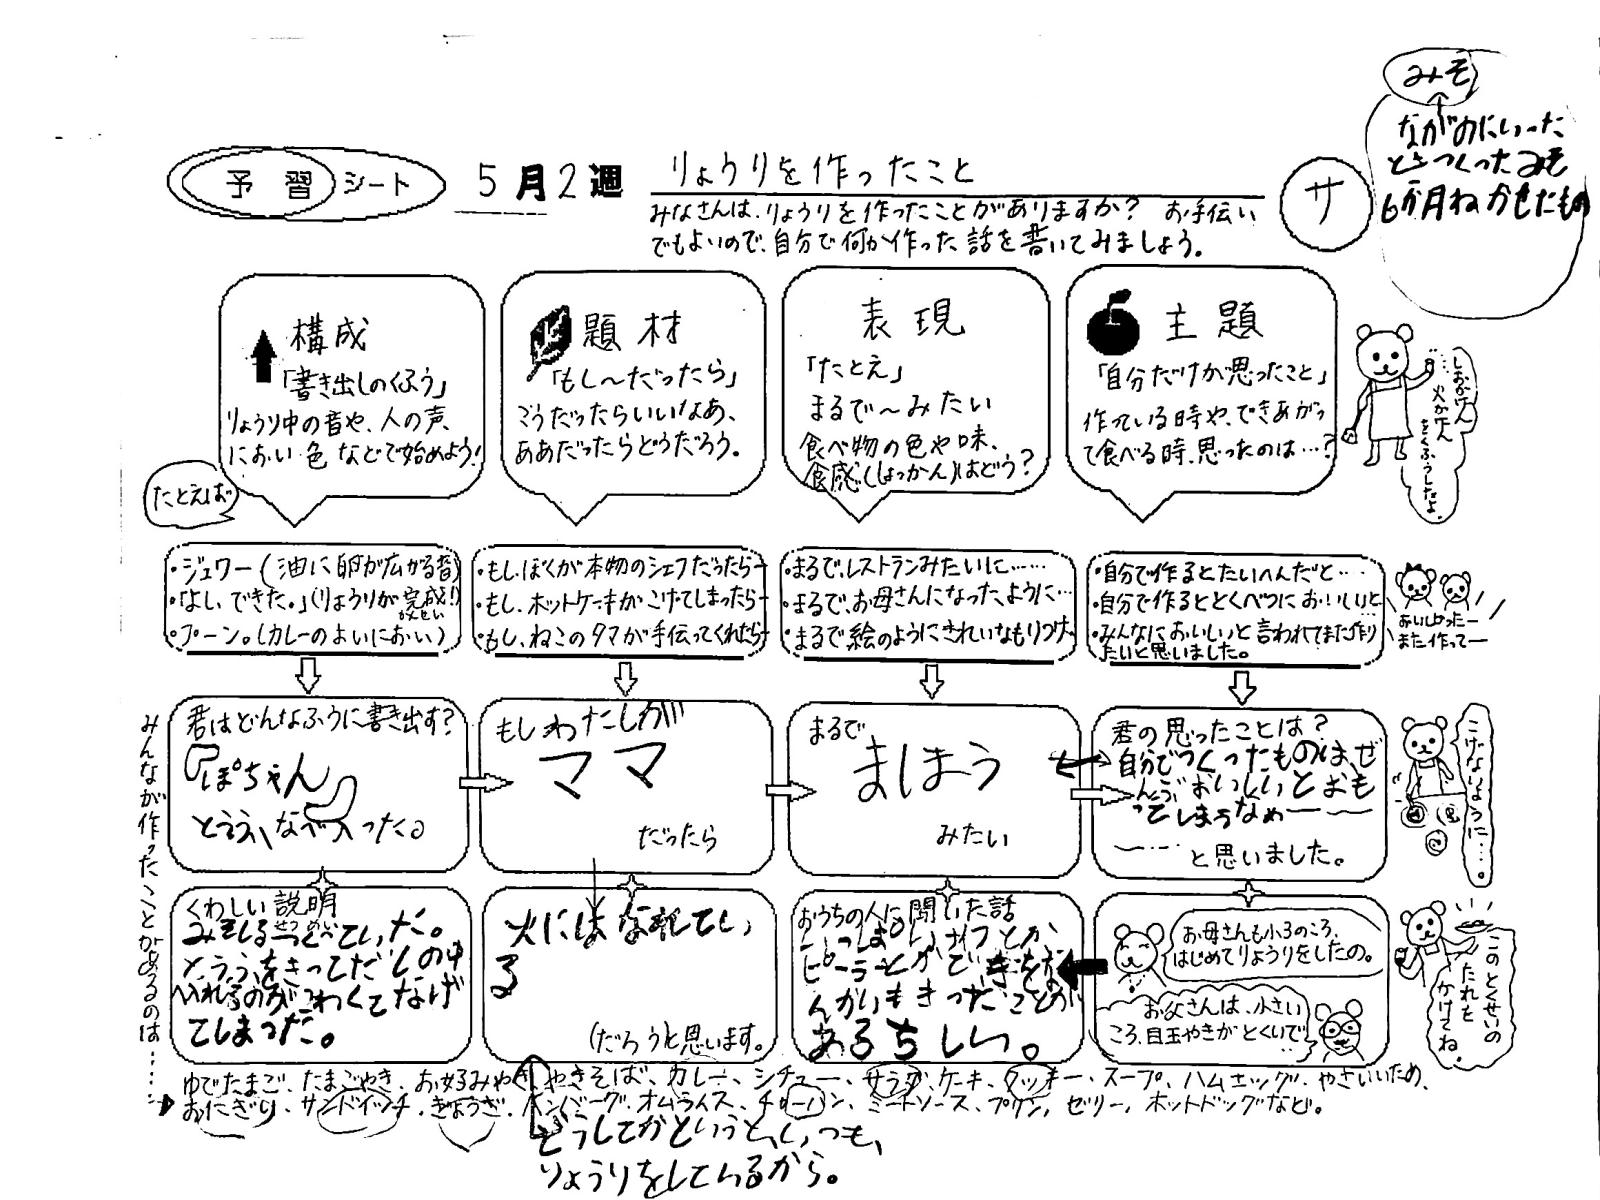 みそ
ながのにいった
ときつくったみそ
6か月ねかせたもの
予習シート 5月2週 りょうりを作ったこと
サ
みなさんは、りょうりを作ったことがありますか? お手伝い
でもよいので、自分で何か作った話を書いてみましょう。
構成
「書き出しのくふう」
りょうり中の音や、人の声、
におい 色 などで始めよう!
題材
「もし〜だったら」
こうだったらいいなあ、
ああだったらどうだろう。
表現
「たとえ」
まるで〜みたい
食べ物の色や味、
食感(しょっかん)はどう?
主題
「自分だけが思ったこと」
作っている時や、できあがっ
て食べる時、思ったのは…?
しおかげん
火かげん
をくふうしたよ。
たとえば
・ジュワー(油に卵が広がる音)
・「よし、できた。」(りょうりが完成!)
かんせい
・プーン。(カレーのよいにおい)
・もし、ぼくが本物のシェフだったら―
・もし、ホットケーキがこげてしまったら―
・もし、ねこのタマが手伝ってくれたら―
・まるで、レストランみたいに……
・まるで、お母さんになった、ように…
・まるで絵のようにきれいなもりつけ
・自分で作るとたいへんだと…
・自分で作るととくべつにおいしいと
・みんなにおいしいと言われてまた作り
たいと思いました。
おいしかったー
また作ってー
君はどんなふうに書き出す?
「ぽちゃん」
とうふ、なべ入った。
もしわたしが
ママ
だったら
まるで
まほう
みたい
君の思ったことは?
自分でつくったものは、ぜ
んぶおいしいとおも
ってしまうなぁー
〜…と思いました。
こげないように…。
くわしい説明
せつめい
みそしるつくっていた。
とうふをきってだしの中
へいれるのがこわくてなげ
てしまった。
火にはな離してい
る
(だろう)と思います。
おうちの人に聞いた話
ピーラーとかで
んかいもきったことが
あるらしい。
お母さんも小3のころ、
はじめてりょうりをしたの。
お父さんは、小さい
ころ、目玉やきがとくいで…
このとくせいの
たれを
かけてね。
みんなが作ったことがあるのは……
ゆでたまご、たまごやき、お好みやき、やきそば、カレー、シチュー、サラダ、ケーキ、クッキー、スープ、ハムエッグ、やさいいため、
おにぎり、サンドイッチ、ぎょうざ、ハンバーグ、オムライス、チャーハン、ミートソース、プリン、ゼリー、ホットドッグなど。
どうしてかというと、いつも、
りょうりをしているから。